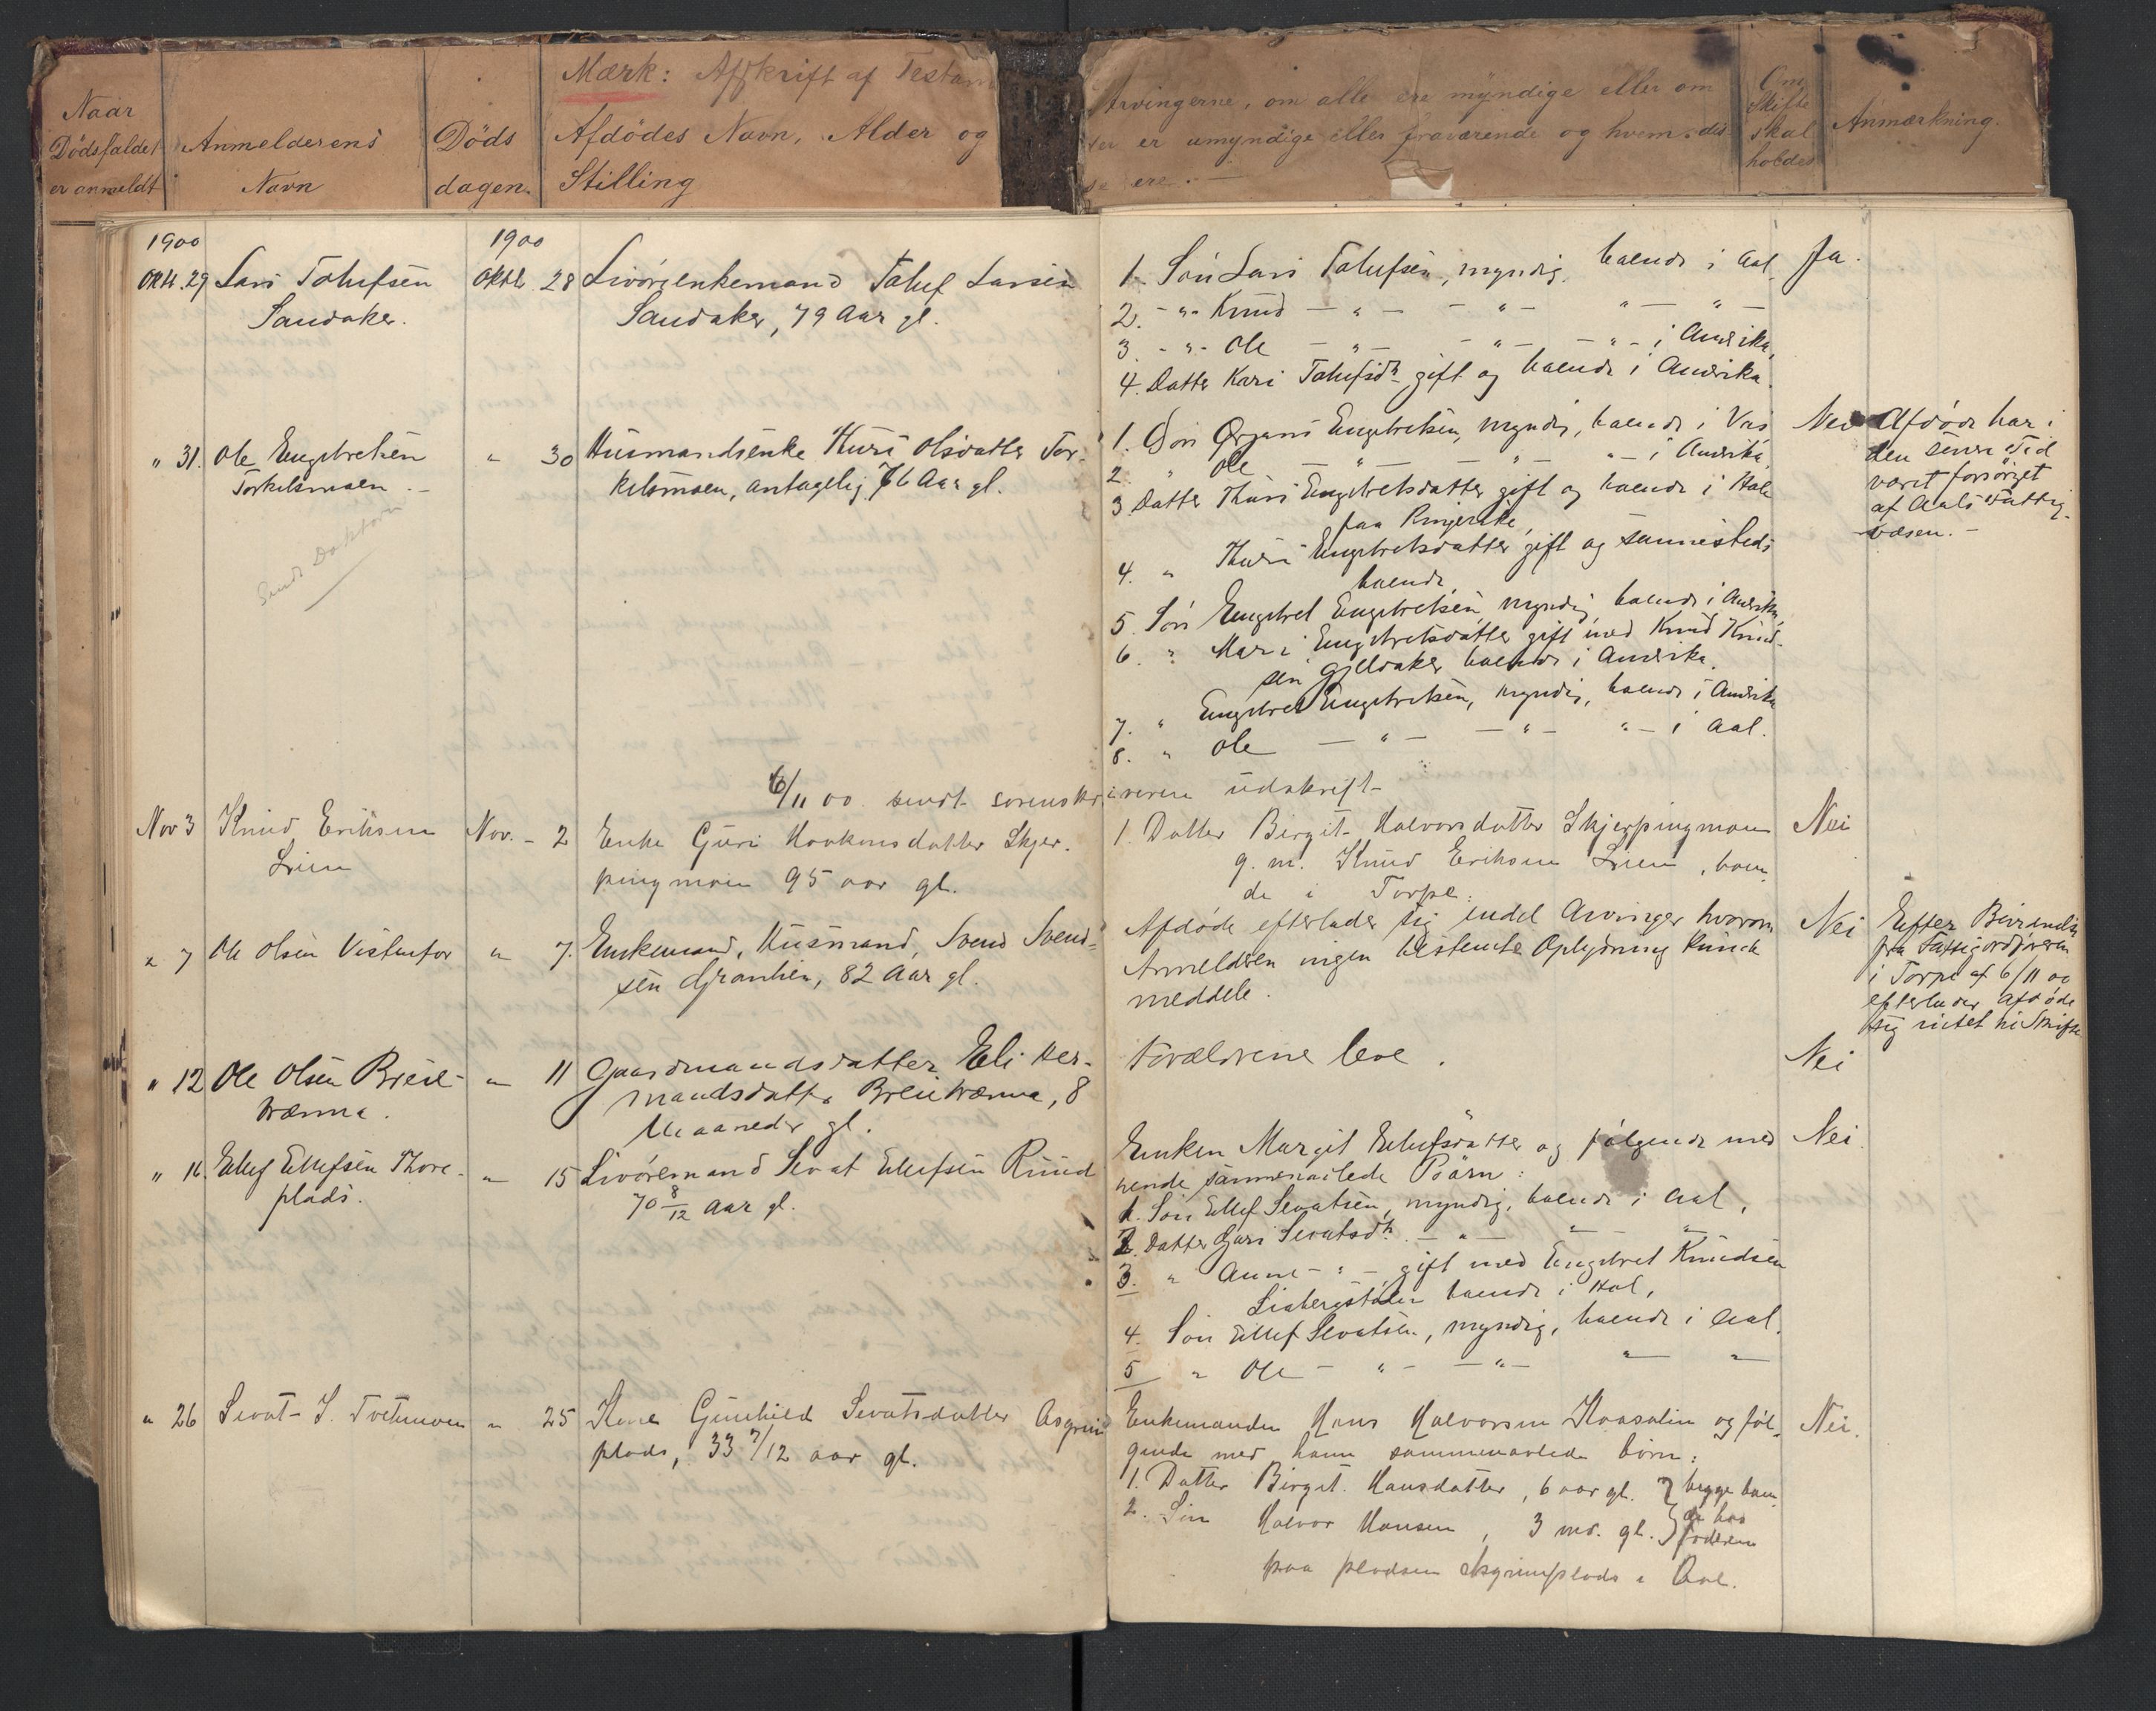 Naar
Dödsfaldet
er anmeldt
Anmelderens
Navn
Döds
dagen.
Mærk: Afskrift af Testam
Afdödes Navn, Alder og
Stilling
Arvingerne, om alle ere myndige eller om
der er umyndige eller fraværende og hvem dis
se ere. —
Om
Skifte
skal
holdes
Anmærkning.
1900
Oktb. 29 Lars Tolufsen
Sandaker.
1900
Oktb. 28 Livörenkemand Toluf Larsen
Sandaker, 79 Aar gl.
1. Sön Lars Tolufsen, myndig, boende i Aal,
2. - " - Knud — " — — " — " — " —
3. - " - Ole — " — — " — — " — i Amerika,
4. Datter Kari Tolufsdtr gift og boende i Amerika.
Ja.
" 31. Ole Engebretsen
Torkelsmoen. —
Send Doktoren
" 30 Husmandsenke Thuri Olsdatter Tor-
kelsmoen, antagelig 76 Aar gl.
1. Sön Ørjans Engebretsen, myndig, boende i Vas
2. " Ole — " — — " — " — i Amerika,
3. Datter Thuri Engebretsdatter gift og boende i Hole
paa Ringerike,
4. " Thuri Engebretsdatter gift og sammesteds
boende,
5. Sön Engebret Engebretsen, myndig boende i Amerika,
6. " Mari Engebretsdatter gift med Knud Knud-
sen Gjeldaker boende i Amerika.
7. " Engebret Engebretsen, myndig, boende i Amerika
8. " Ole — " — — " — " — i Aal.
Nei
Afdöde har i
den senere Tid
været forsörget
af Aals Fattig-
væsen. —
6/11 00 sendt sorenskriveren udskrift
Nov 3 Knud Eriksen
Lien
Nov. - 2 Enke Guri Haakonsdatter Skjer-
pingmoen 95 aar gl.
1. Datter Birgit Halvorsdatter Skjerpingmoen
g. m. Knud Eriksen Lien, boen-
de i Torpe.
Nei
" 7 Ole Olsen Vestenfor
" 7. Enkemand, Husmand, Svend Svend-
sen Granlien, 82 Aar gl.
Afdöde efterlader sig endel Arvinger hvorom
Anmelderen ingen bestemte Oplysning kunde
meddele.
Nei
Efter Beretning
fra Fattigordföreren
i Torpe af 6/11 00
efterlader afdöde
sig intet til Skifte
" 12 Ole Olsen Breie-
trænna.
" 11 Gaardmandsdatter Eli Her-
mandsdatter Breietrænna, 8
Maaneder gl.
Forældrene leve.
Nei
" 16. Ellef Ellefsen Thore-
plads.
" 15 Livöremand Sevat Ellefsen Ruud
70 8/12 Aar gl.
Enken Margit Ellefsdatter og fölgende med
hende sammenavlede Börn:
1. Sön Ellef Sevatsen, myndig, boende i Aal,
2. Datter Guri Sevatsdtr. — " — " — "
3. " Anne — " — gift med Engebret Knudsen
Liabergstölen boende i Hol,
4. Sön Ellef Sevatsen, myndig, boende i Aal.
5 " Ole — " — — " — " "
Nei.
" 26 Sevat S. Tvetenmoen
" 25 Kone Gunhild Sevatsdatter Asgrim
plads, 33 7/12 aar gl.
Enkemanden Hans Halvorsen Kaasalien og föl-
gende med ham sammenavlede börn:
1. Datter Birgit Hansdatter, 6 aar gl. } begge boen-
2. Sön Halvor Hansen, 3 md. gl. } de hos
faderen
paa pladsen Asgrimplads i Aal.
Nei.